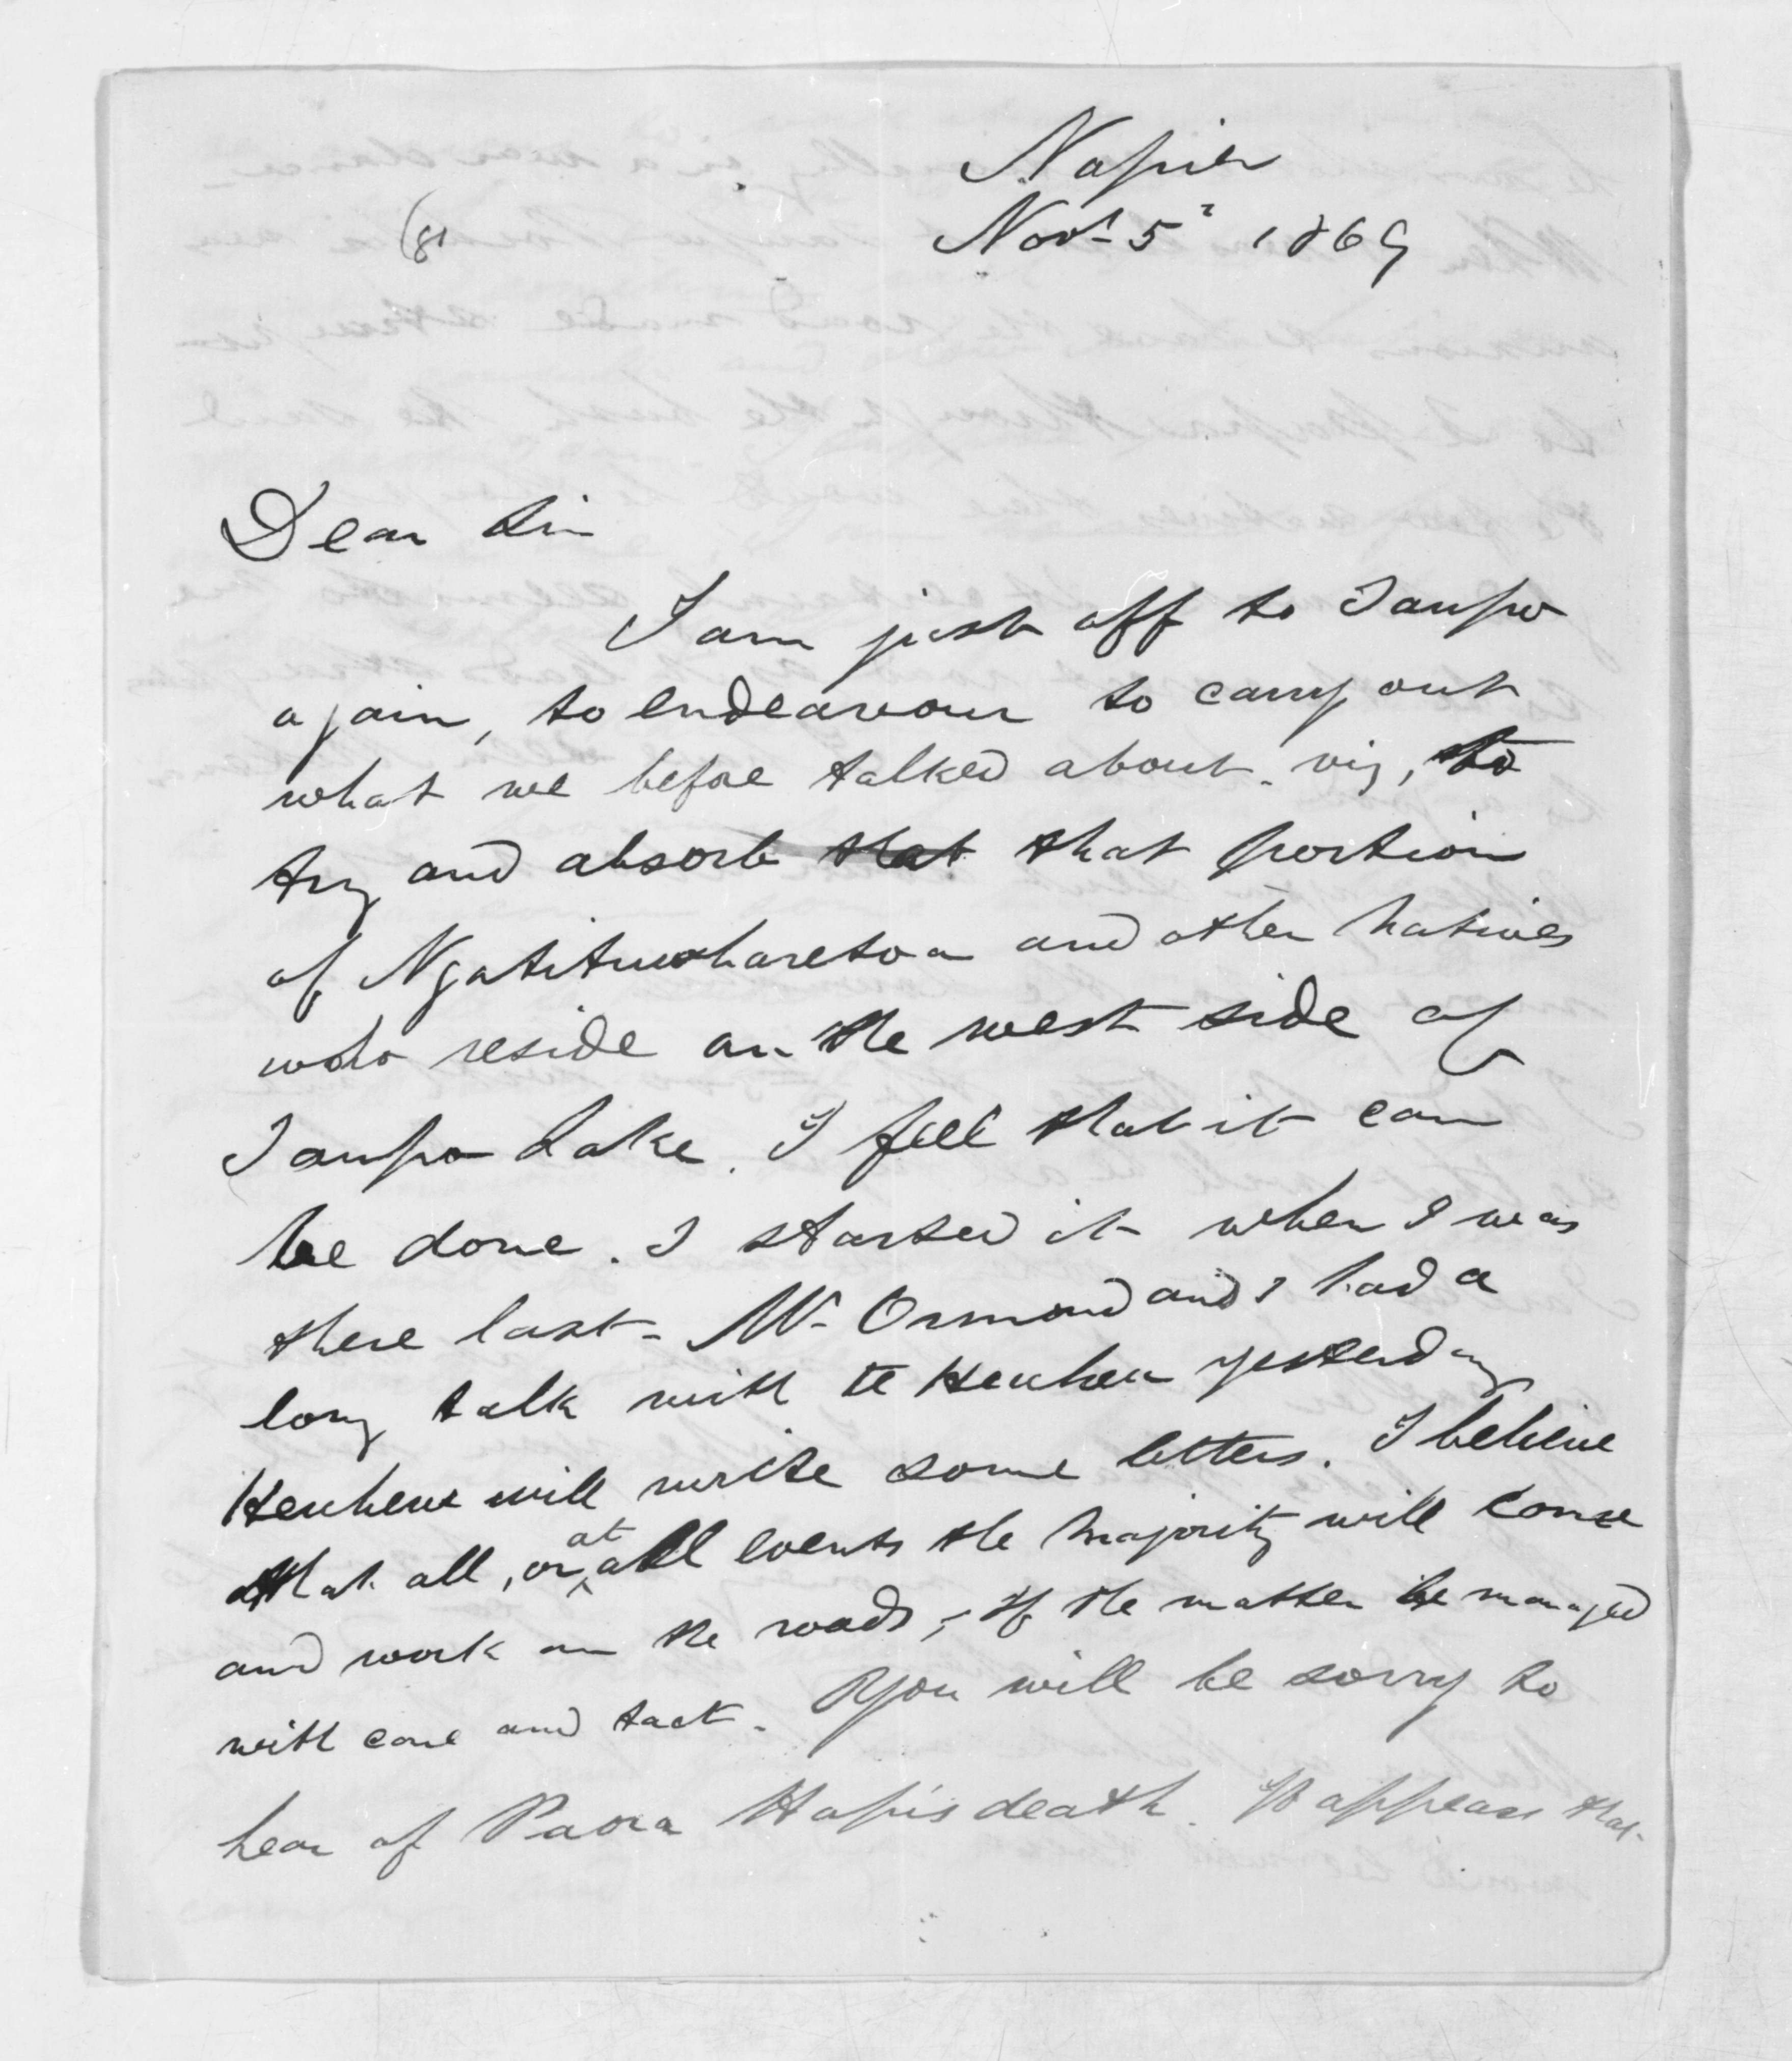 Napier
(81
Novr 5th 1869
Dear Sir
I am just off to Taupo
again, to endeavour to carry out
what we before talked about. viz, to
try and absorb that that portion
of Ngatituwharetoa and other Natives
who reside on the west side of
Taupo Lake. I feel that it can
be done. I started it when I was
there last. Mr Ormond and I had a
long talk with te Heuheu yesterday
Heuheu will write some letters. I believe
that all, or at all events the majority will come
and work on the roads, if the matter be managed
with care and tact. You will be sorry to
hear of Paora Hapi's death. It appears that